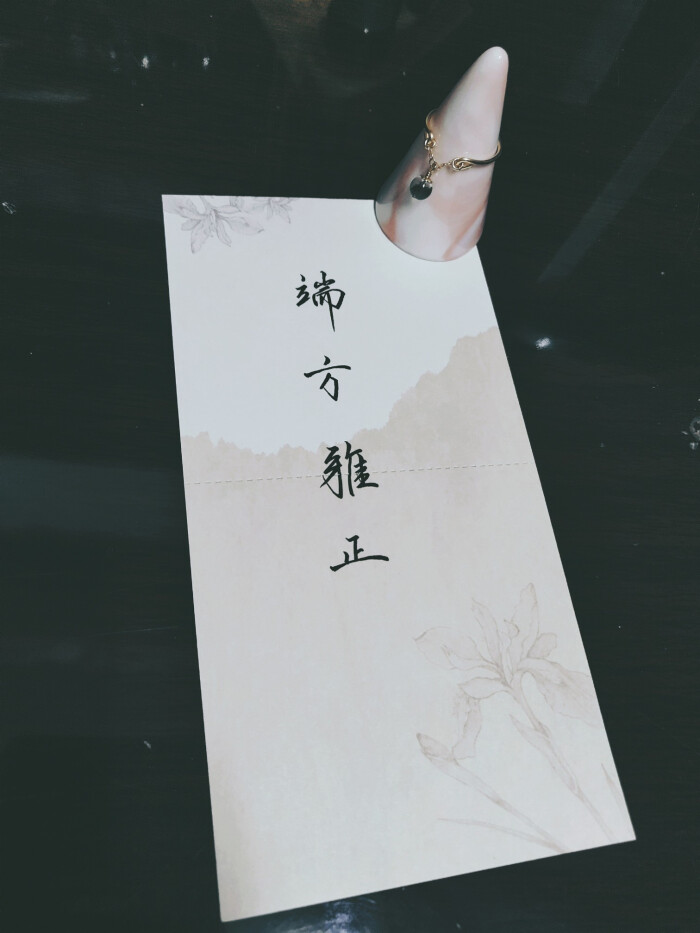 端方雅正